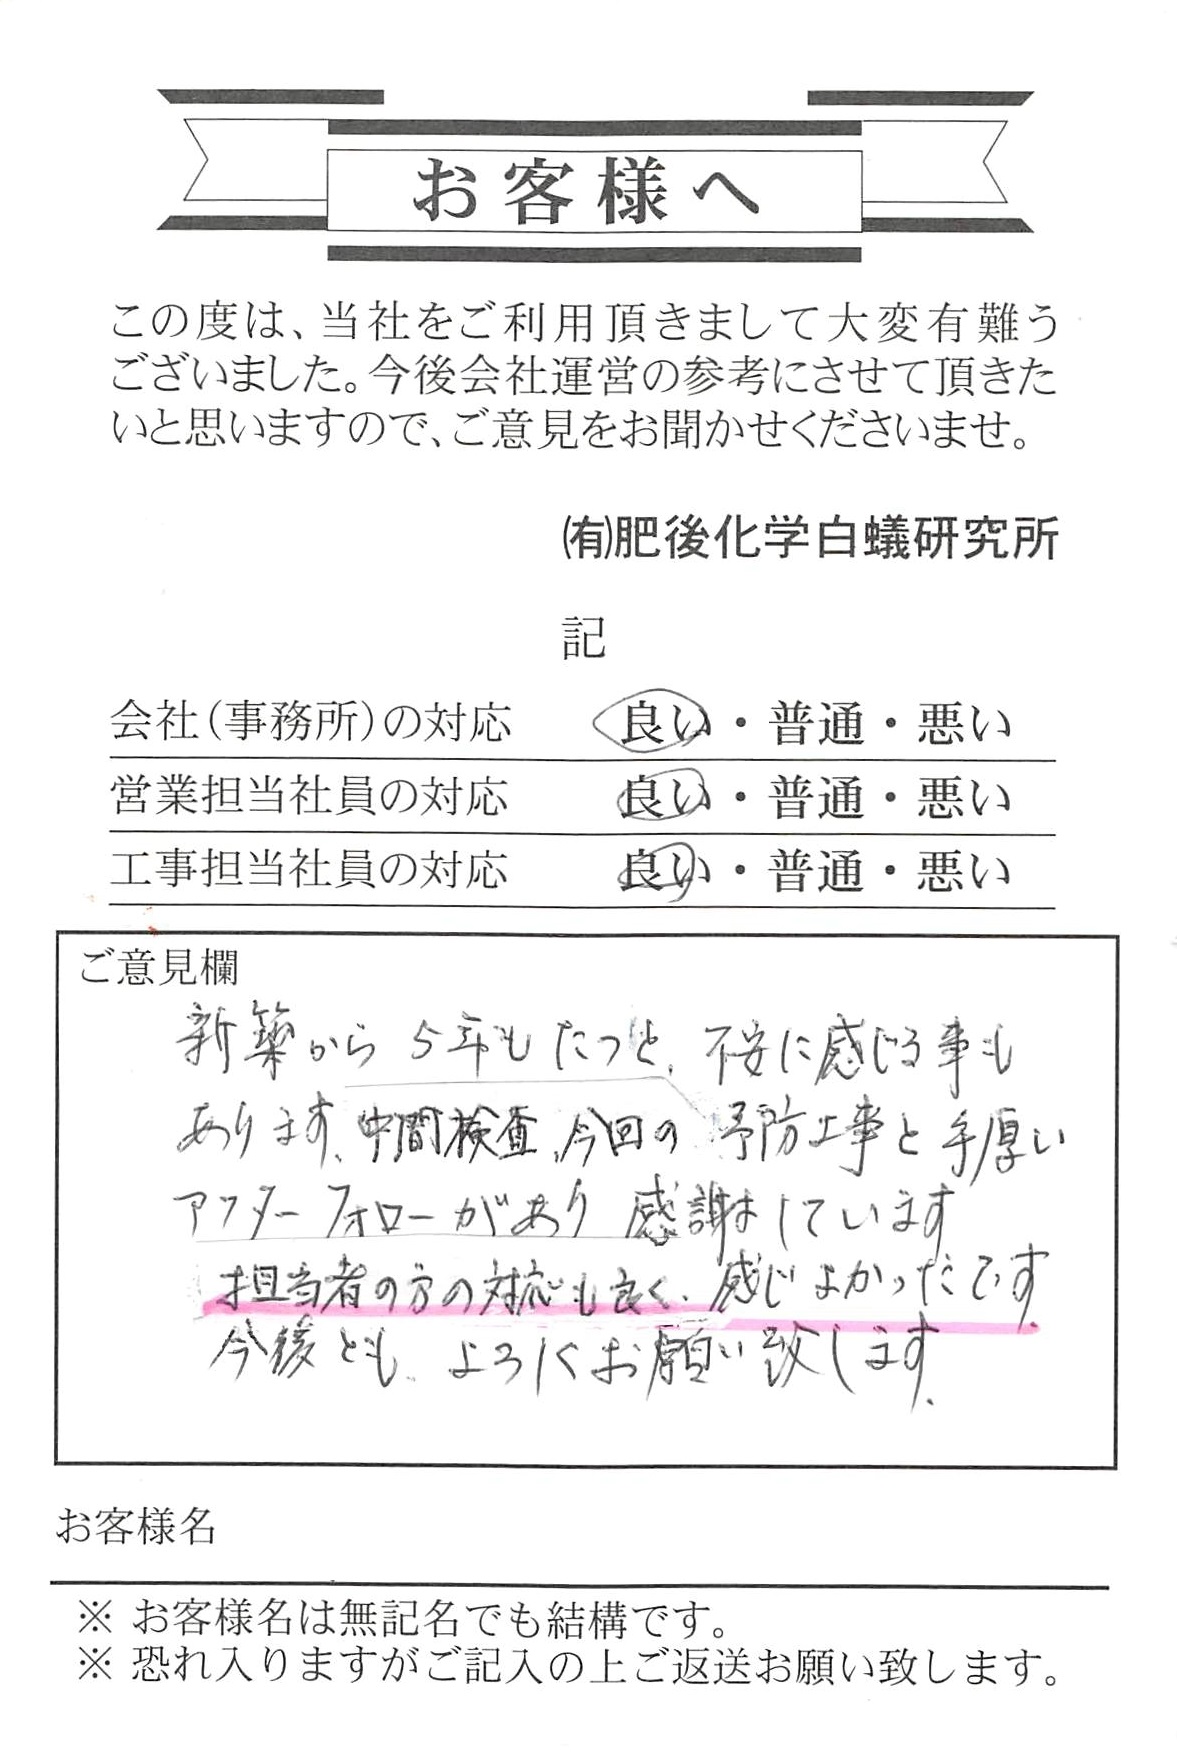 お客様へ
この度は、当社をご利用頂きまして大変有難う
ございました。今後会社運営の参考にさせて頂きた
いと思いますので、ご意見をお聞かせくださいませ。
㈲肥後化学白蟻研究所
記
会社(事務所)の対応 良い・普通・悪い
営業担当社員の対応 良い・普通・悪い
工事担当社員の対応 良い・普通・悪い
ご意見欄
新築から5年もたつと、不安に感じる事も
あります。中間検査、今回の予防工事と手厚い
アフターフォローがあり感謝しています
担当者の方の対応も良く、感じよかったです。
今後とも、よろしくお願い致します。
お客様名
※ お客様名は無記名でも結構です。
※ 恐れ入りますがご記入の上ご返送お願い致します。